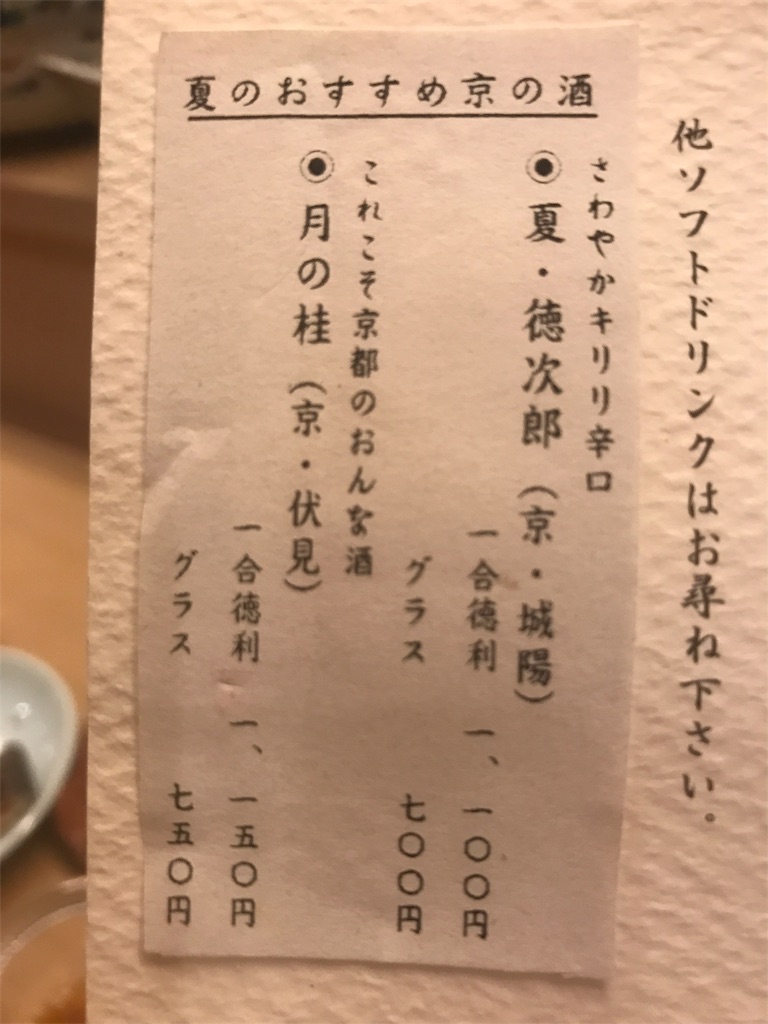 他ソフトドリンクはお尋ね下さい。
夏のおすすめ京の酒
さわやかキリリ辛口
◉夏・徳次郎（京・城陽）
一合徳利 一、一〇〇円
グラス 七〇〇円
これこそ京都のおんな酒
◉月の桂（京・伏見）
一合徳利 一、一五〇円
グラス 七五〇円